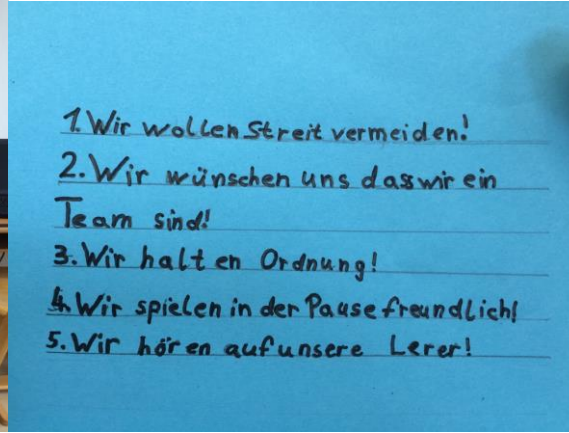 1. Wir wollen Streit vermeiden!
2. Wir wünschen uns dass wir ein
Team sind!
3. Wir halten Ordnung!
4. Wir spielen in der Pause freundlich!
5. Wir hören auf unsere Lerer!